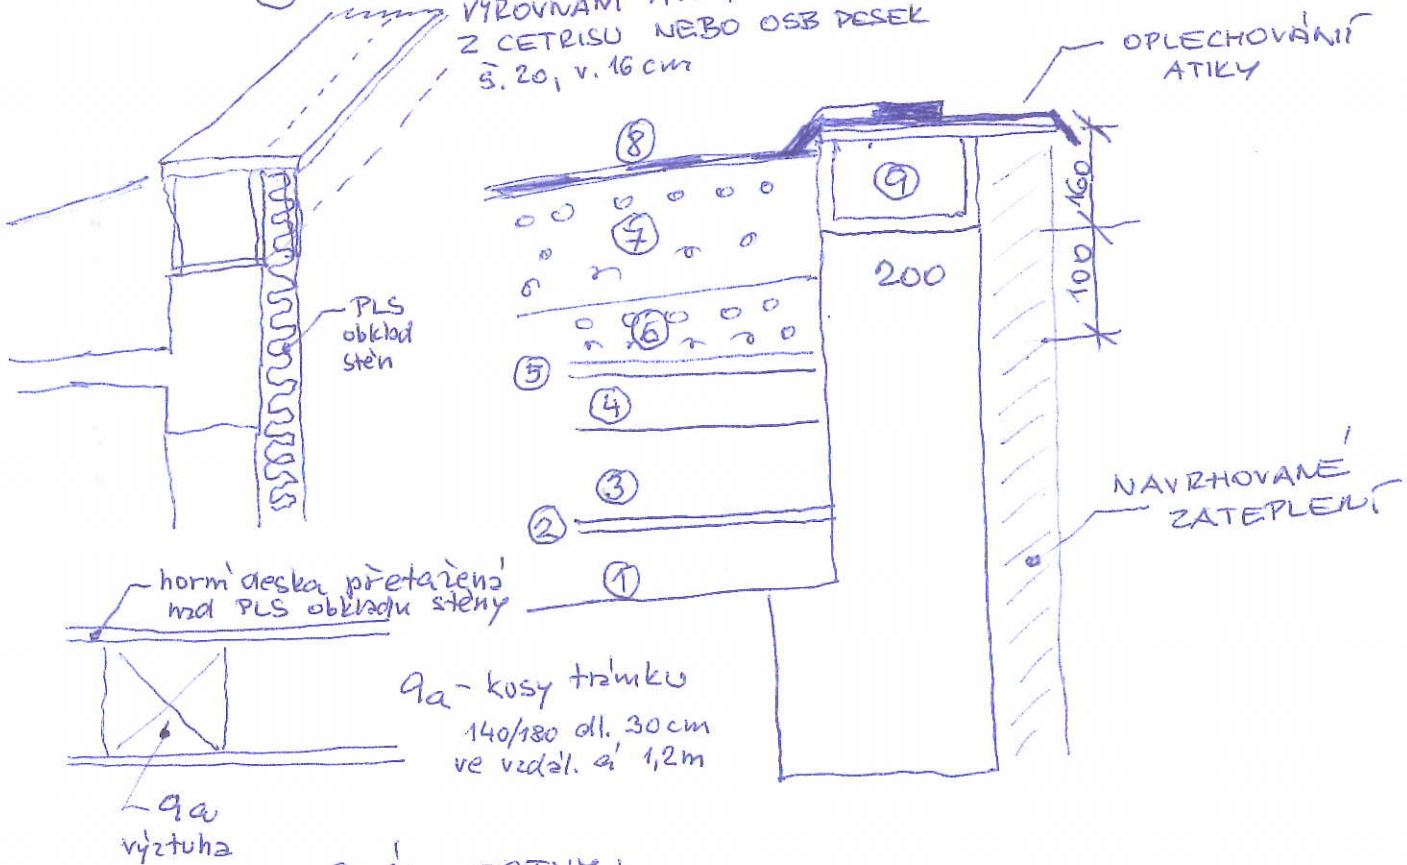 VYROVNÁNÍ
Z CETRISU NEBO OSB DESEK
š. 20, v. 16 cm
OPLECHOVÁNÍ
ATIKY
8
9
160
7
200
100
PLS
obklad
stěn
6
5
4
3
NAVRHOVANÉ
ZATEPLENÍ
2
1
horní deska přetažená
nad PLS obkladu stěny
9a - kusy trámku
140/180 dl. 30 cm
ve vzdál. á 1,2 m
9a
výztuha